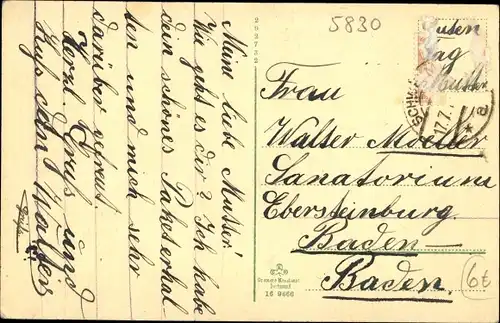 5830
Guten
Tag
Mutter
Meine liebe Mutter!
Wie geht es dir? Ich habe
dein schönes Paket erhal-
ten und mich sehr
darüber gefreut
Herzl. Gruß und
Kuß dein Walter
293732
Frau
Walter Moeller
Sanatorium
Ebersteinburg.
Baden-
Baden.
17.7.
a
16 9466
6€